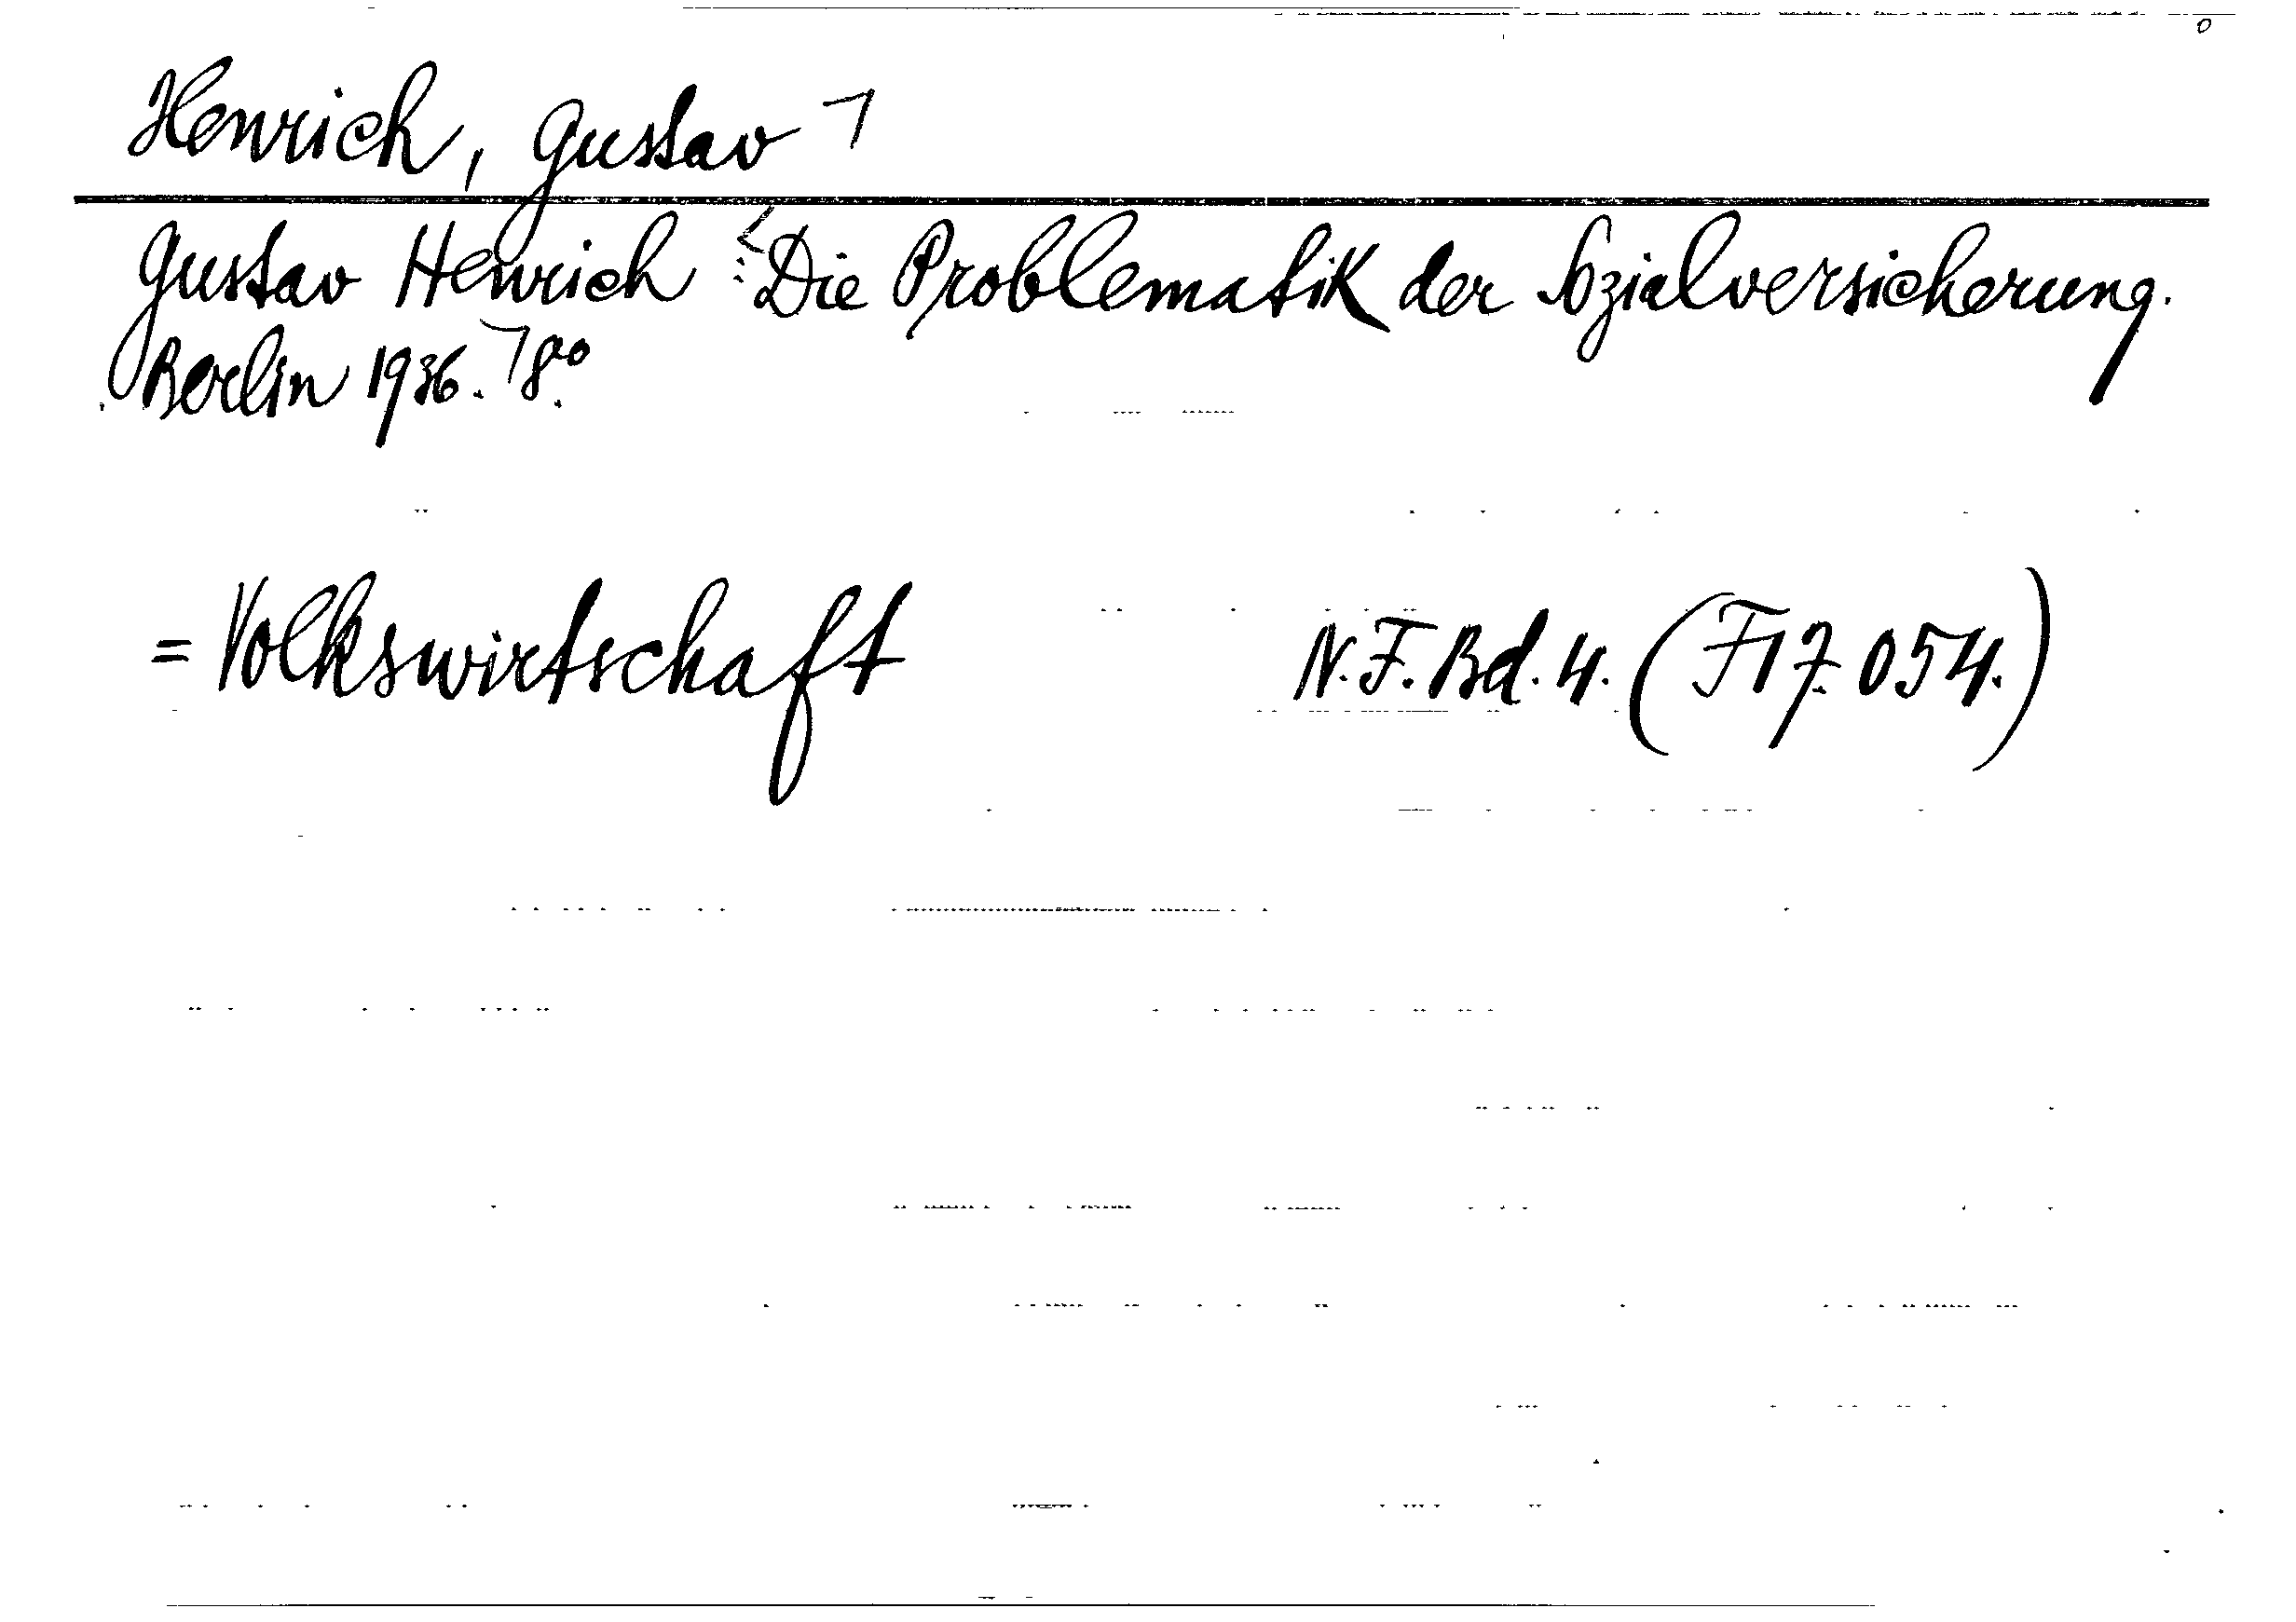 Henrich, Gustav ⌝
Gustav Henrich : Die Problematik der Sozialversicherung.
Berlin 1936. ⌝ 8°.
= Volkswirtschaft N.F. Bd. 4. (F 17. 054.)